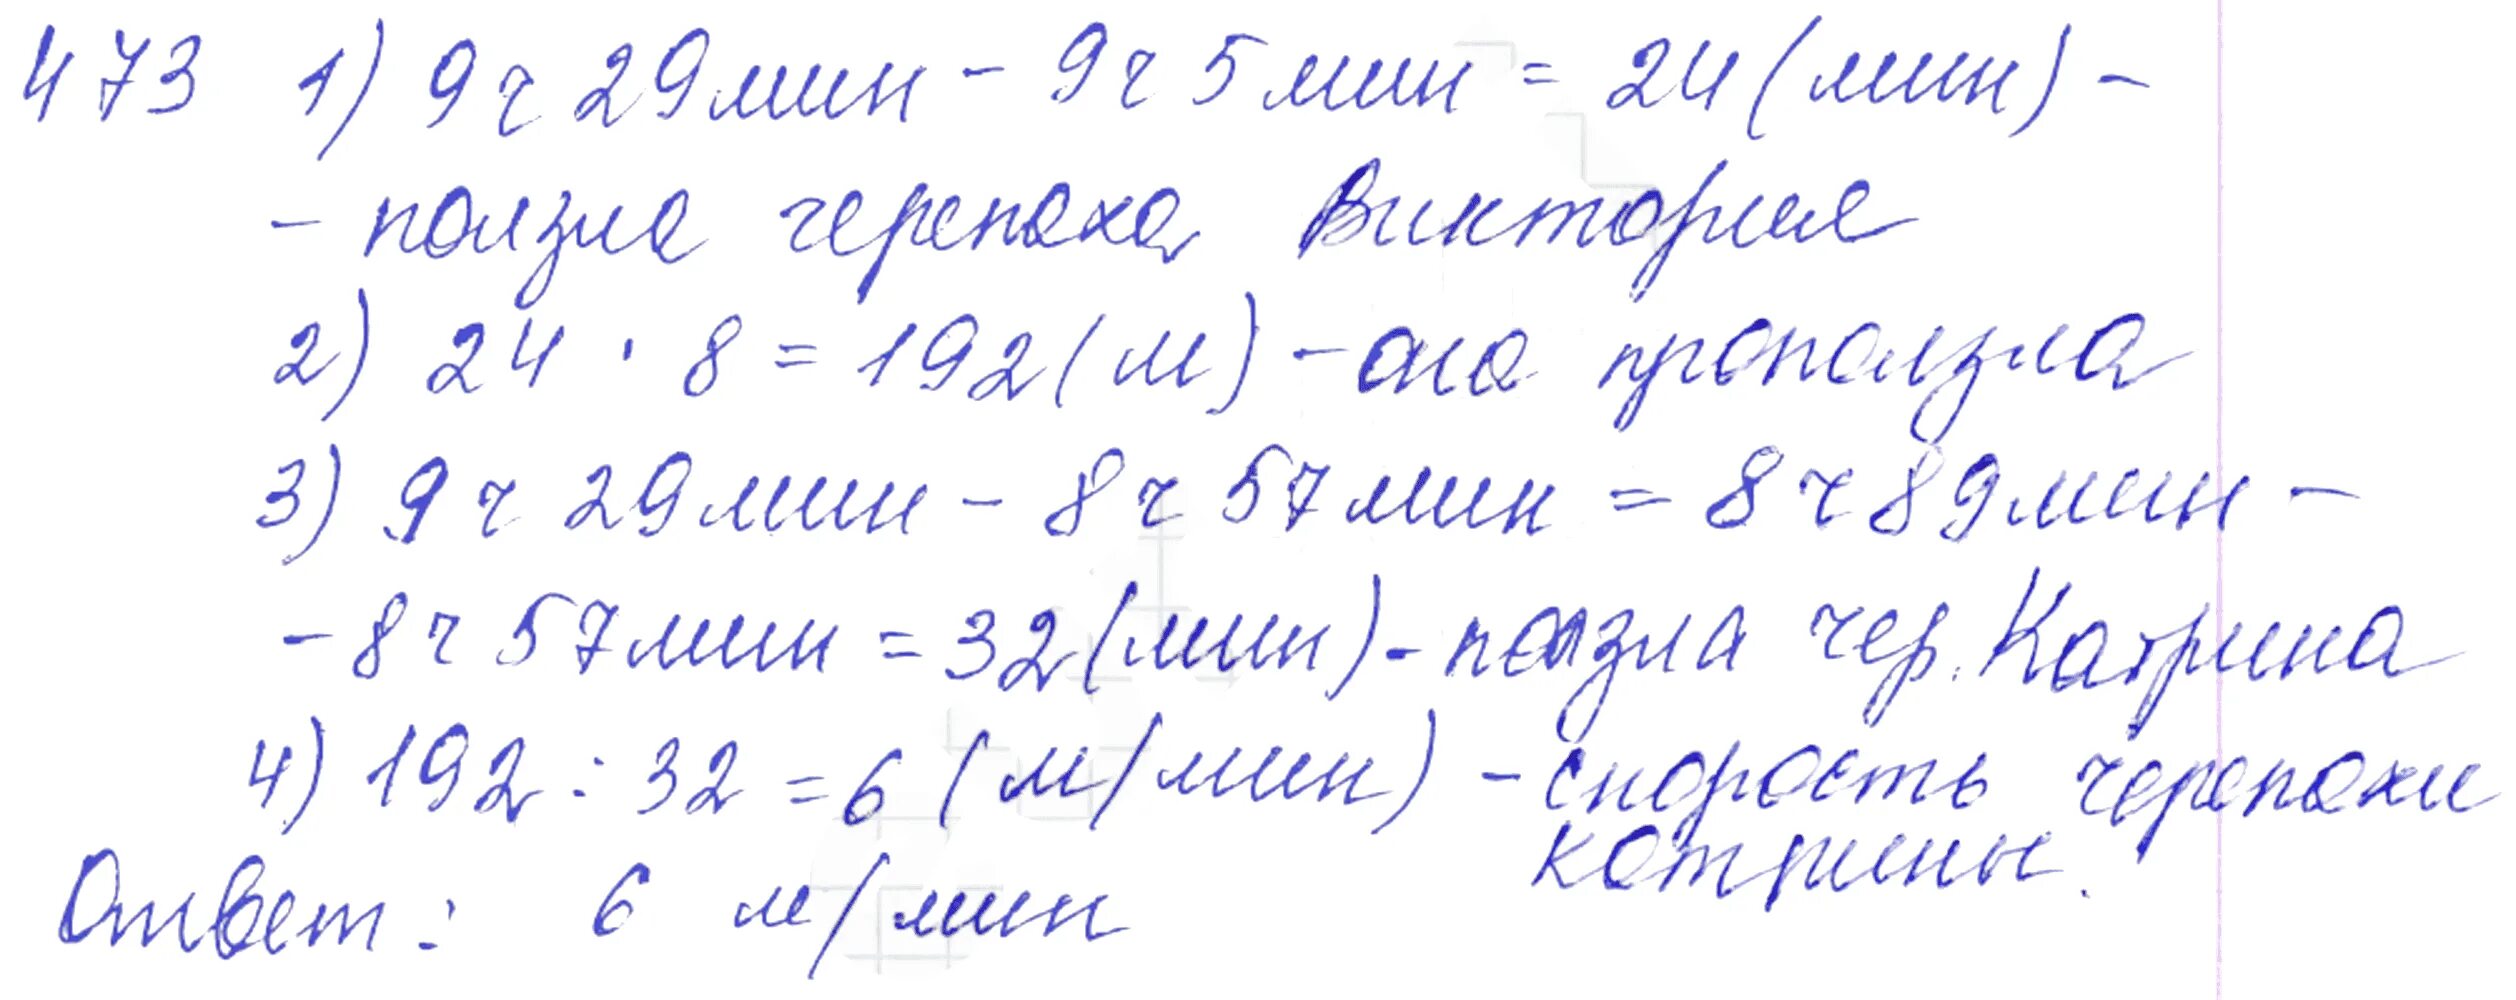 473 1) 9 ч 29 мин - 9 ч 5 мин = 24 (мин) -
- ползла черепаха Виктория
2) 24 · 8 = 192 (м) - она проползла
3) 9 ч 29 мин - 8 ч 57 мин = 8 ч 89 мин -
- 8 ч 57 мин = 32 (мин) - ползла чер. Катрина
4) 192 : 32 = 6 (м/мин) - скорость черепахи
катрины.
Ответ: 6 м/мин